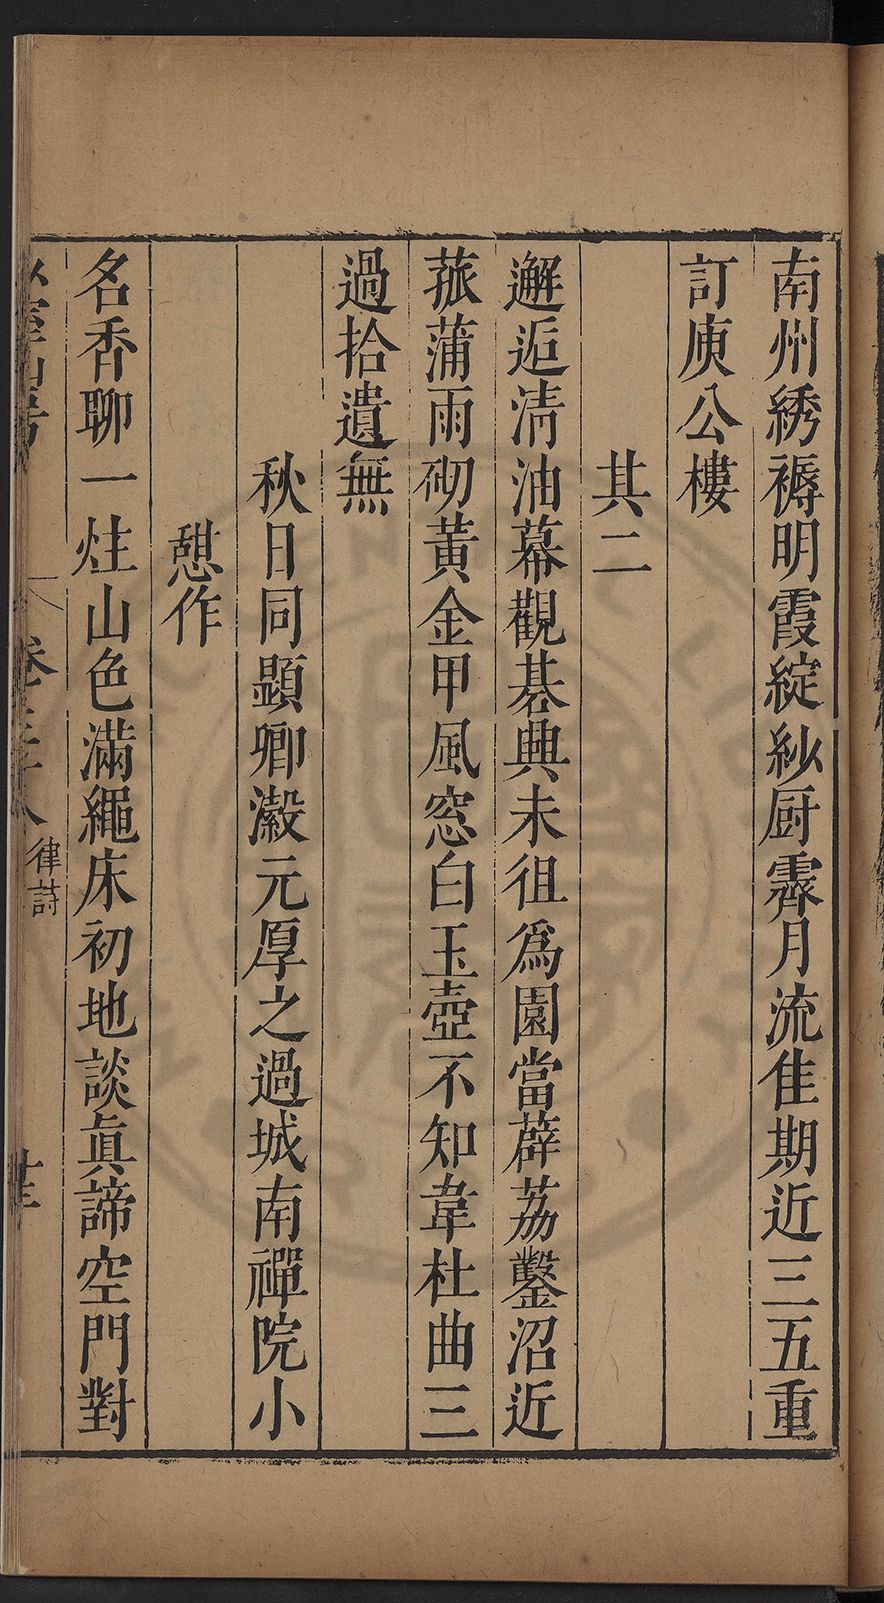 南州綉褥明霞綻紗厨霽月流佳期近三五重
訂庾公樓
其二
邂逅清油幕觀碁興未徂爲園當薜荔鑿沼近
菰蒲雨砌黃金甲風窓白玉壺不知韋杜曲三
過拾遺無
秋日同顕卿瀫元厚之過城南禪院小
憇作
名香聊一炷山色滿繩床初地談眞諦空門對
卷三十八
律詩